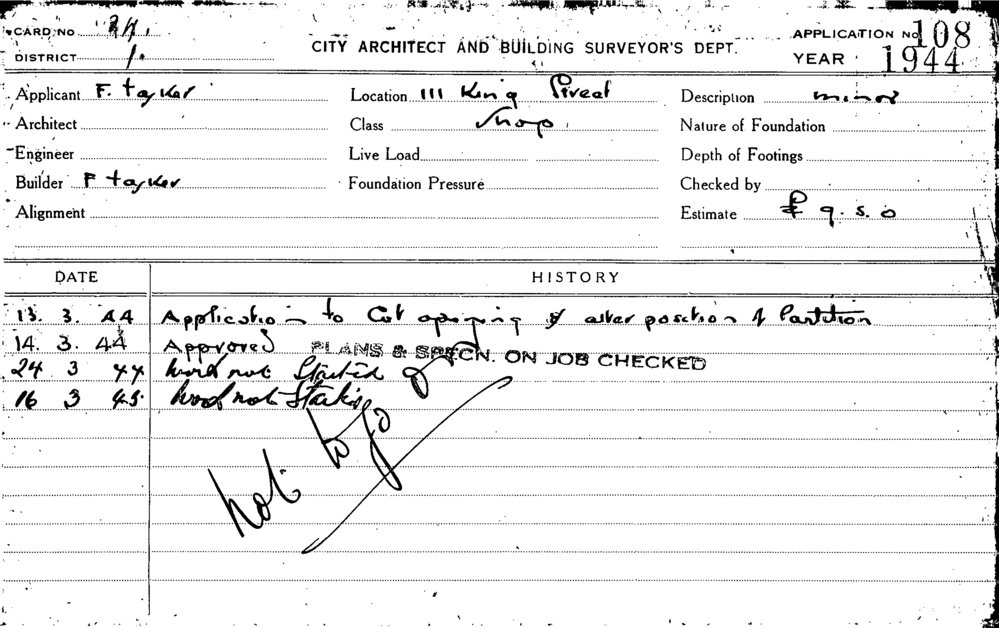 CARD NO
DISTRICT 1.
CITY ARCHITECT AND BUILDING SURVEYOR'S DEPT.
APPLICATION No 108
YEAR 1944
Applicant F. Tayler Location 111 King Street Description minor
Architect Class Shop Nature of Foundation
Engineer Live Load Depth of Footings
Builder F Tayler Foundation Pressure Checked by
Alignment Estimate £ 9. 5. 0
DATE HISTORY
13. 3. 44 Application to Cut opening & alter position of Partition
14. 3. 44 Approved PLANS & SPECN. ON JOB CHECKED
24 3 44 Work not Started
16 3 45 Work not Started
Not to go on